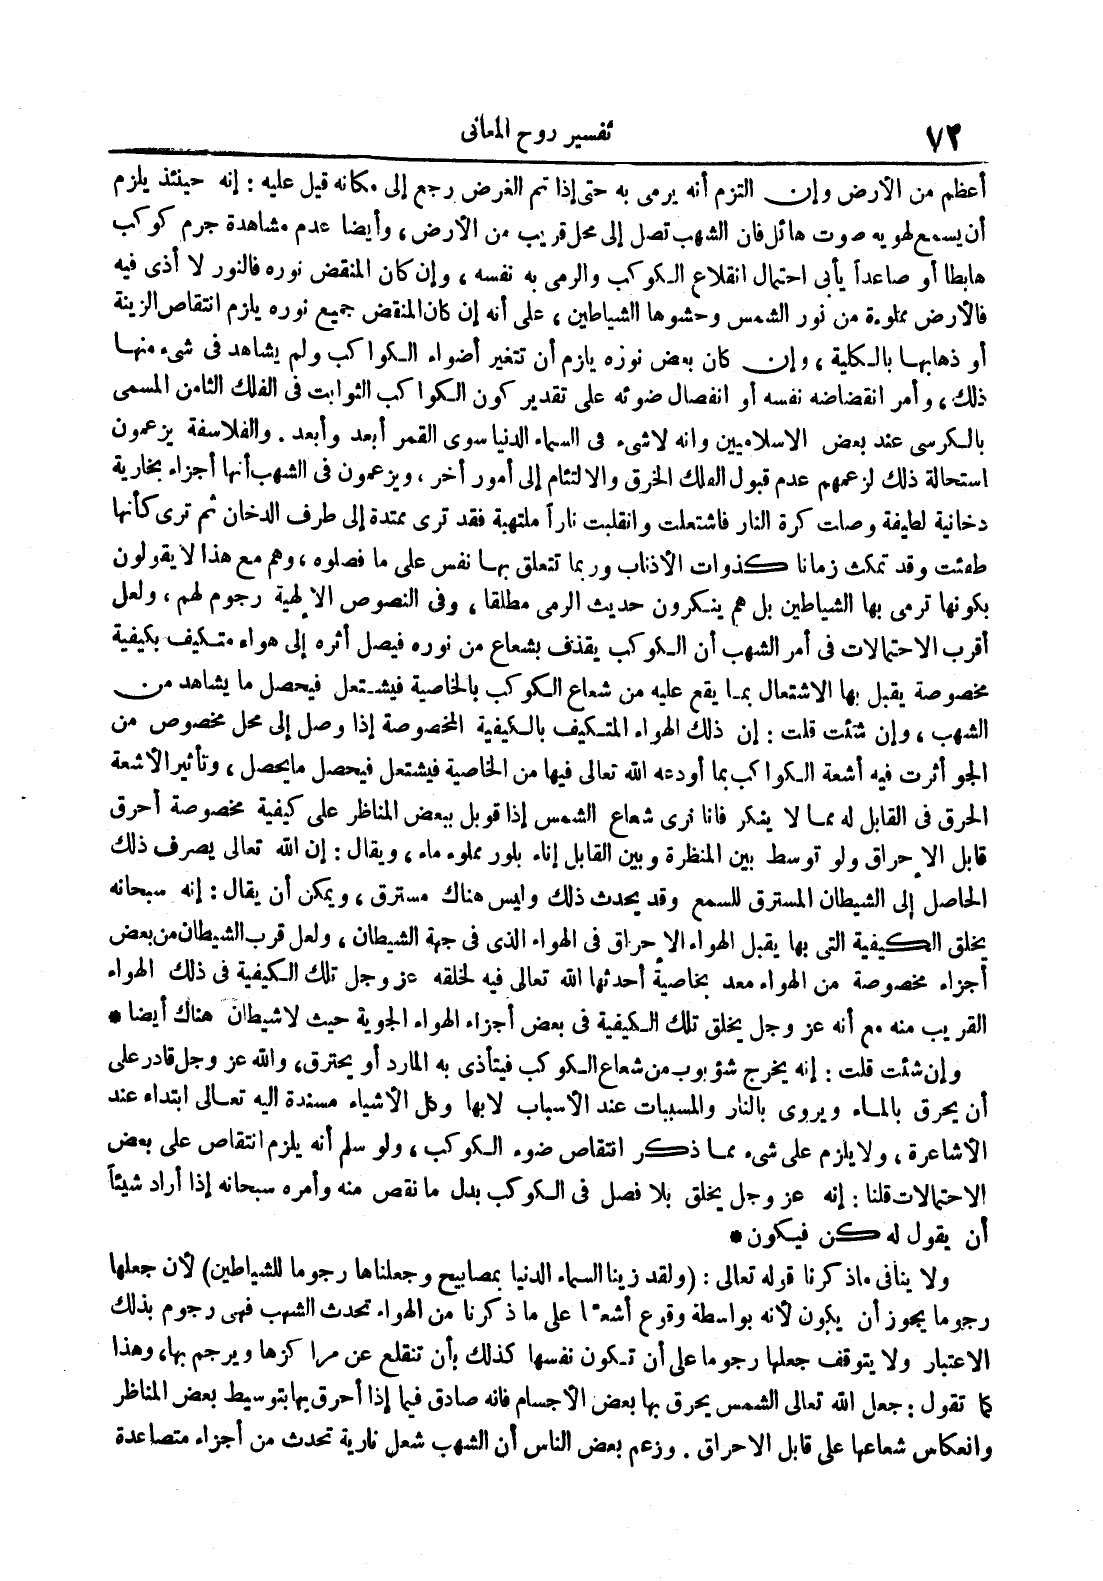 ٧٢
تفسير روح المعانى
أعظم من الأرض وإن التزم أنه يرمى به حتى إذا تم الغرض رجع إلى مكانه قيل عليه : إنه حينئذ يلزم
أن يسمع لهويه صوت هائل فان الشهب تصل إلى محل قريب من الأرض ، وأيضا عدم مشاهدة جرم كوكب
هابطا أو صاعداً يأبى احتمال انقلاع الكوكب والرمى به نفسه ، وإن كان المنقض نوره فالنور لا أذى فيه
فالأرض مملوءة من نور الشمس وحشوها الشياطين ، على أنه إن كان المنقض جميع نوره يلزم انتقاص الزينة
أو ذهابها بالكلية ، وإن كان بعض نوره يلزم أن تتغير أضواء الكواكب ولم يشاهد فى شىء منها
ذلك ، وأمر انقضاضه نفسه أو انفصال ضوئه على تقدير كون الكواكب الثوابت فى الفلك الثامن المسمى
بالكرسى عند بعض الاسلاميين وانه لاشىء فى السماء الدنيا سوى القمر أبعد وأبعد . والفلاسفة يزعمون
استحالة ذلك لزعمهم عدم قبول الفلك الخرق والالتئام إلى أمور أخر ، ويزعمون فى الشهب أنها أجزاء بخارية
دخانية لطيفة وصلت كرة النار فاشتعلت وانقلبت ناراً ملتهبة فقد ترى ممتدة إلى طرف الدخان ثم ترى كأنها
طفئت وقد تمكث زمانا كذوات الأذناب وربما تتعلق بها نفس على ما فصلوه ، وهم مع هذا لا يقولون
بكونها ترمى بها الشياطين بل هم ينكرون حديث الرمى مطلقا ، وفى النصوص الإلهية رجوم لهم ، ولعل
أقرب الاحتمالات فى أمر الشهب أن الكوكب يقذف بشعاع من نوره فيصل أثره إلى هواء متكيف بكيفية
مخصوصة يقبل بها الاشتعال بما يقع عليه من شعاع الكوكب بالخاصية فيشتعل فيحصل ما يشاهد من
الشهب ، وإن شئت قلت : إن ذلك الهواء المتكيف بالكيفية المخصوصة إذا وصل إلى محل مخصوص من
الجو أثرت فيه أشعة الكواكب بما أودعه الله تعالى فيها من الخاصية فيشتعل فيحصل مايحصل ، وتأثير الأشعة
الحرق فى القابل له مما لا ينكر فانا نرى شعاع الشمس إذا قوبل ببعض المناظر على كيفية مخصوصة أحرق
قابل الإحراق ولو توسط بين المنظرة وبين القابل إناء بلور مملوء ماء ، ويقال : إن الله تعالى يصرف ذلك
الحاصل إلى الشيطان المسترق للسمع وقد يحدث ذلك وليس هناك مسترق ، ويمكن أن يقال : إنه سبحانه
يخلق الكيفية التى بها يقبل الهواء الإحراق فى الهواء الذى فى جهة الشيطان ، ولعل قرب الشيطان من بعض
أجزاء مخصوصة من الهواء معد بخاصية أحدثها الله تعالى فيه لخلقه عز وجل تلك الكيفية فى ذلك الهواء
القريب منه مع أنه عز وجل يخلق تلك الكيفية فى بعض أجزاء الهواء الجوية حيث لاشيطان هناك أيضا *
وإن شئت قلت : إنه يخرج شؤبوب من شعاع الكوكب فيتأذى به المارد أو يحترق، والله عز وجل قادر على
أن يحرق بالماء ويروى بالنار والمسببات عند الأسباب لابها وكل الأشياء مسندة اليه تعالى ابتداء عند
الأشاعرة ، ولايلزم على شىء مما ذكر انتقاص ضوء الكوكب ، ولو سلم أنه يلزم انتقاص على بعض
الاحتمالات قلنا : إنه عز وجل يخلق بلا فصل فى الكوكب بدل ما نقص منه وأمره سبحانه إذا أراد شيئاً
أن يقول له كن فيكون *
ولا ينافى ماذكرنا قوله تعالى : (ولقد زينا السماء الدنيا بمصابيح وجعلناها رجوما للشياطين) لأن جعلها
رجوما يجوز أن يكون لأنه بواسطة وقوع أشعتها على ما ذكرنا من الهواء تحدث الشهب فهى رجوم بذلك
الاعتبار ولا يتوقف جعلها رجوما على أن تكون نفسها كذلك بأن تنقلع عن مراكزها ويرجم بها، وهذا
كما تقول : جعل الله تعالى الشمس يحرق بها بعض الأجسام فانه صادق فيما إذا أحرق بها بتوسيط بعض المناظر
وانعكاس شعاعها على قابل الاحراق . وزعم بعض الناس أن الشهب شعل نارية تحدث من أجزاء متصاعدة